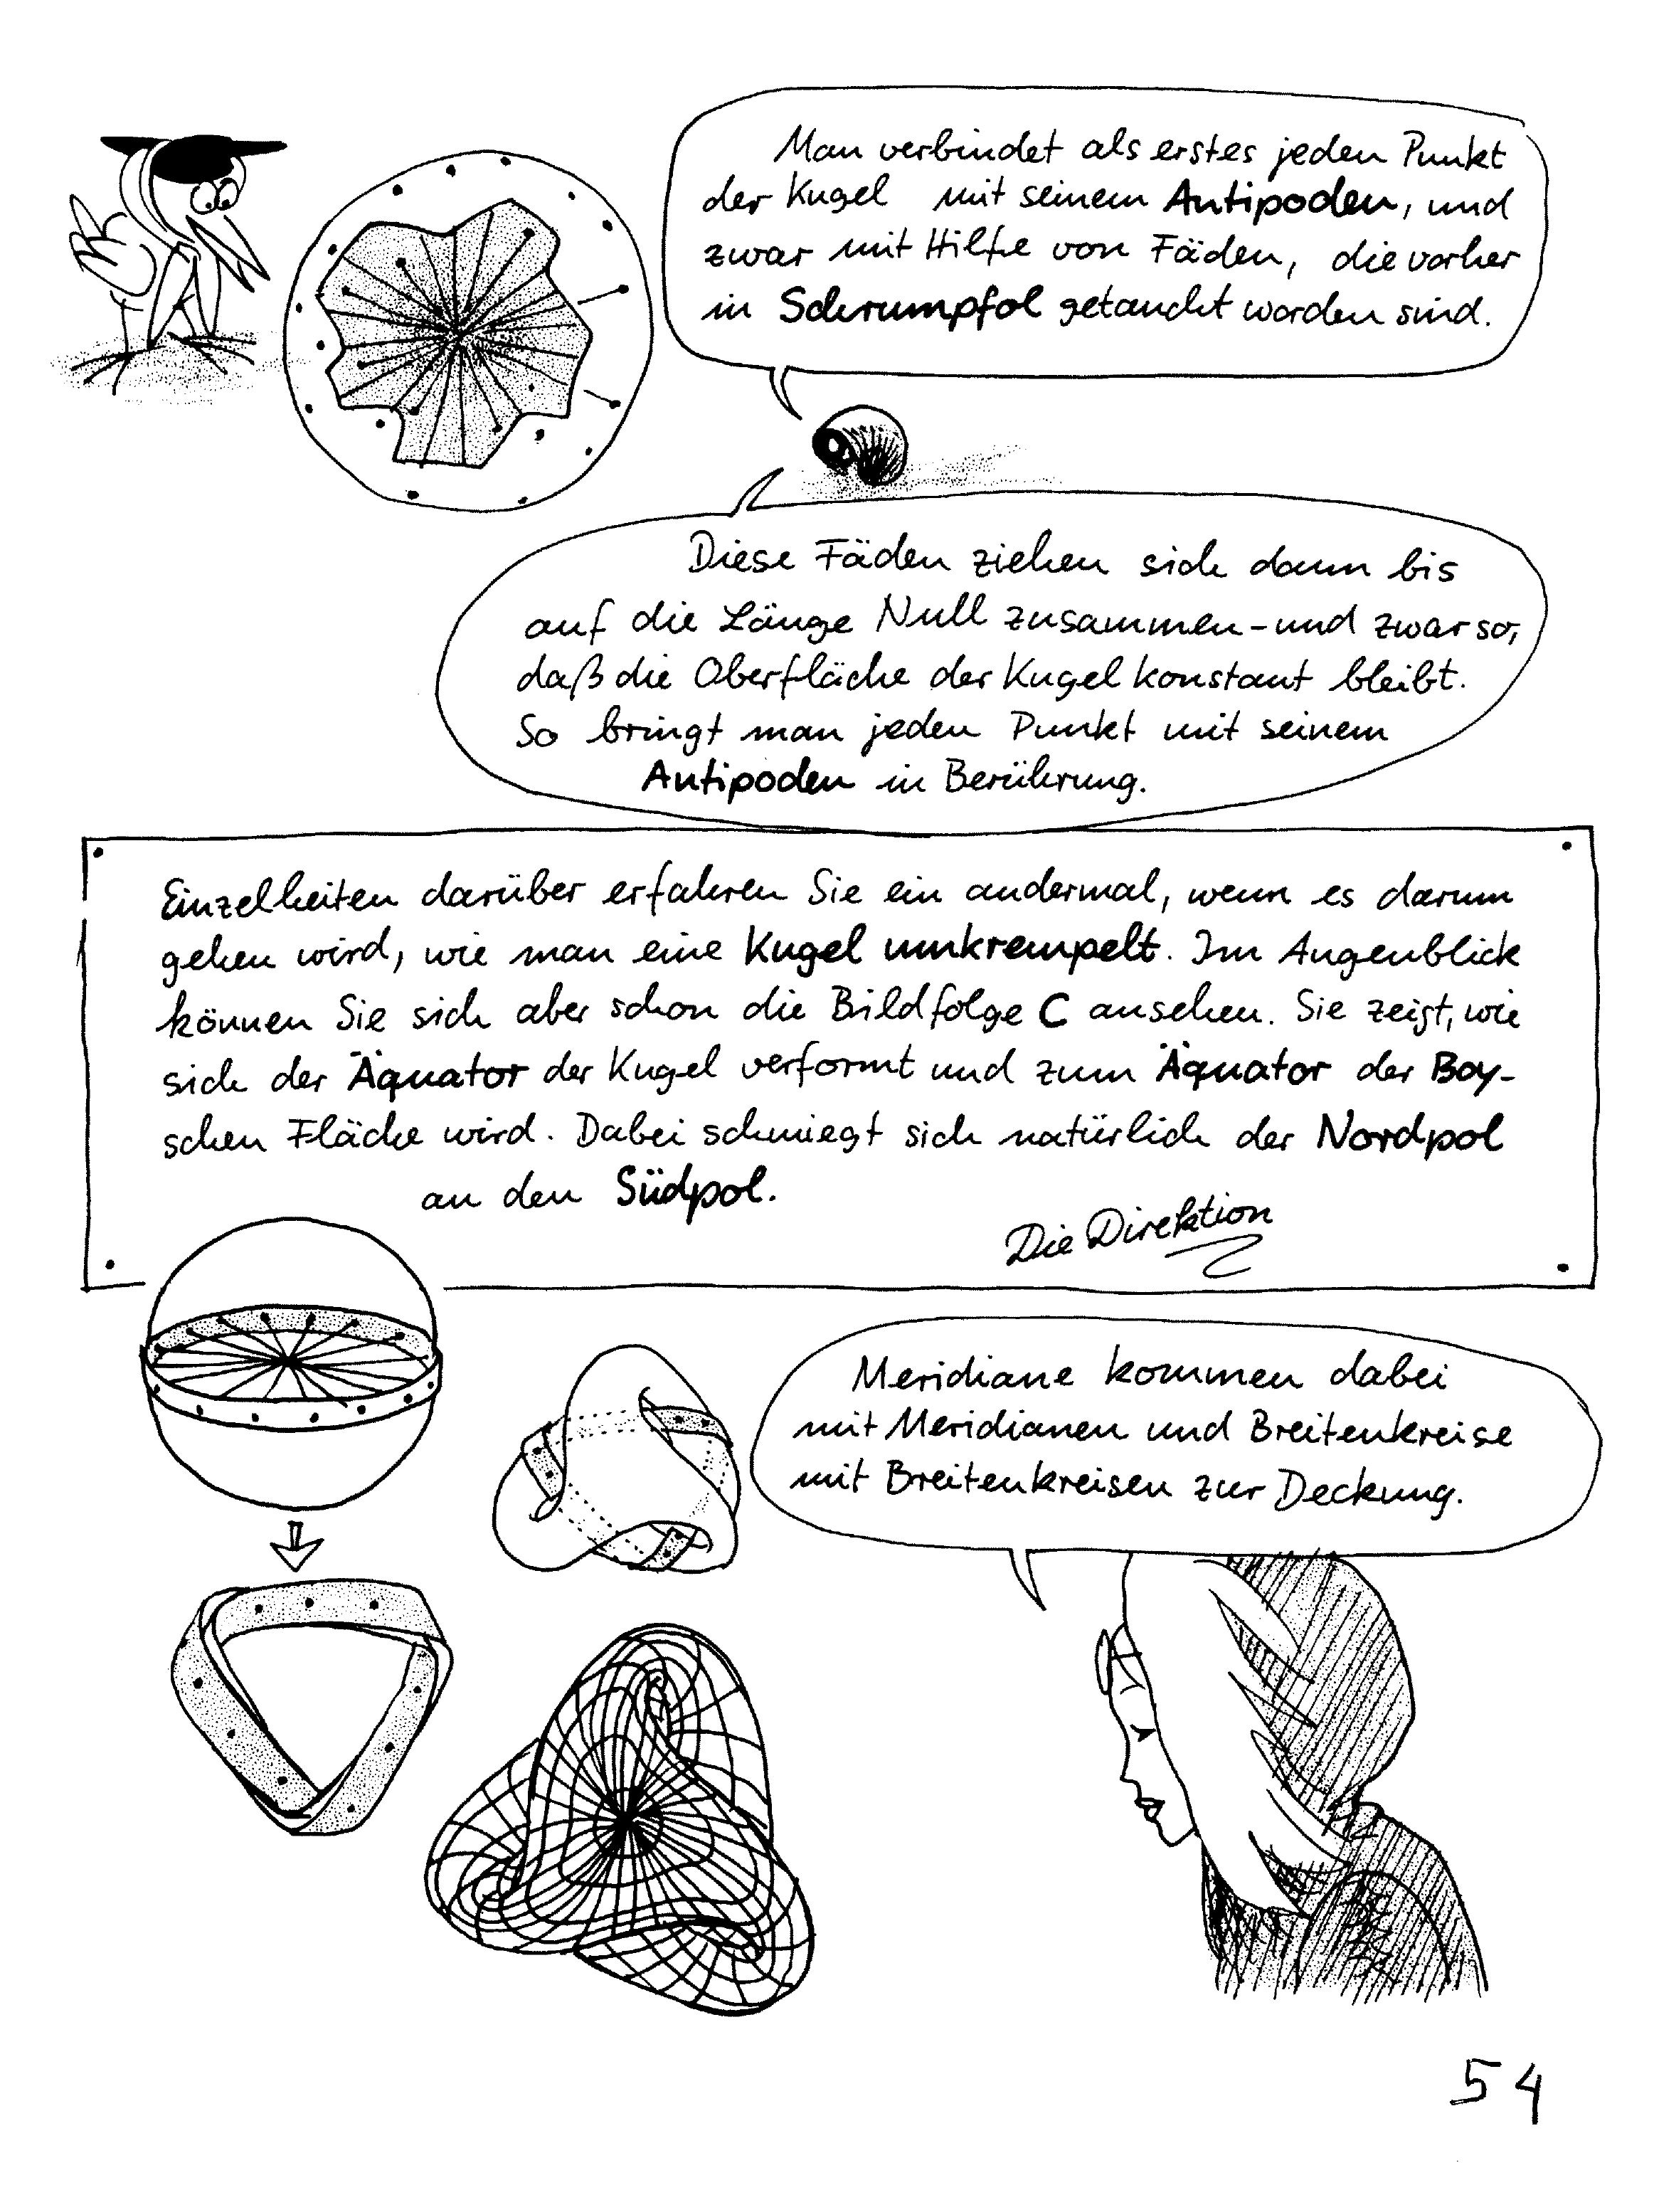 Man verbindet als erstes jeden Punkt
der Kugel mit seinem Antipoden, und
zwar mit Hilfe von Fäden, die vorher
in Schrumpfol getaucht worden sind.
Diese Fäden ziehen sich dann bis
auf die Länge Null zusammen - und zwar so,
daß die Oberfläche der Kugel konstant bleibt.
So bringt man jeden Punkt mit seinem
Antipoden in Berührung.
Einzelheiten darüber erfahren Sie ein andermal, wenn es darum
gehen wird, wie man eine Kugel umkrempelt. Im Augenblick
können Sie sich aber schon die Bildfolge C ansehen. Sie zeigt, wie
sich der Äquator der Kugel verformt und zum Äquator der Boy-
schen Fläche wird. Dabei schmiegt sich natürlich der Nordpol
an den Südpol.
Die Direktion
Meridiane kommen dabei
mit Meridianen und Breitenkreise
mit Breitenkreisen zur Deckung.
54